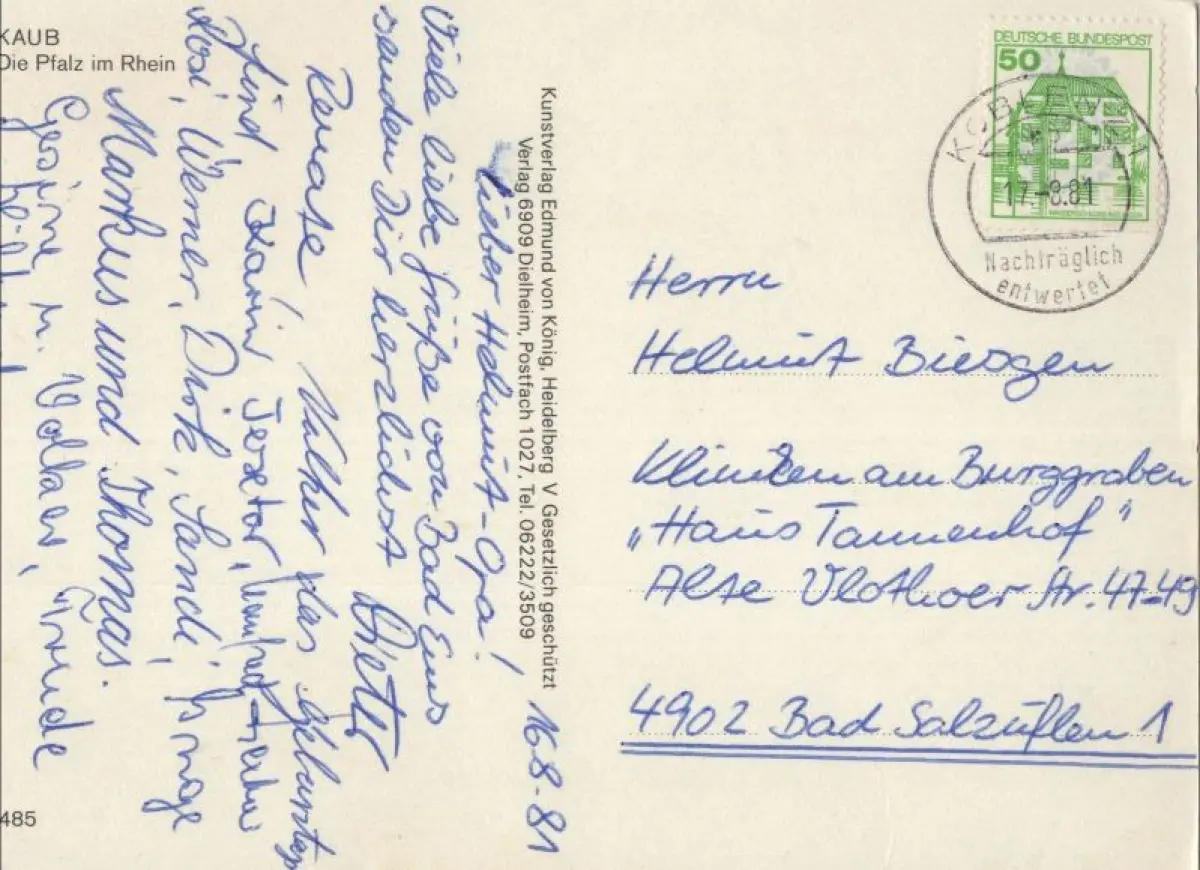 KAUB
Die Pfalz im Rhein
16-8-81
Lieber Helmut-Opa!
Viele liebe Grüße von Bad Ems
senden Dir herzlichst Dieter
Renate, Volker das Geburtstags
kind Karin
Rosi, Werner, Dirk, Sandi,
Markus und Thomas.
Gesine u. Volker,
485
Kunstverlag Edmund von König, Heidelberg V Gesetzlich geschützt
Verlag 6909 Dielheim, Postfach 1027, Tel. 06222/3509
DEUTSCHE BUNDESPOST
50
KOBLENZ 1
17.-8.81
Nachträglich
entwertet
Herrn
Helmut Biesgen
Kliniken am Burggraben
„Haus Tannenhof"
Alte Vlothoer Str. 47-49
4902 Bad Salzuflen 1